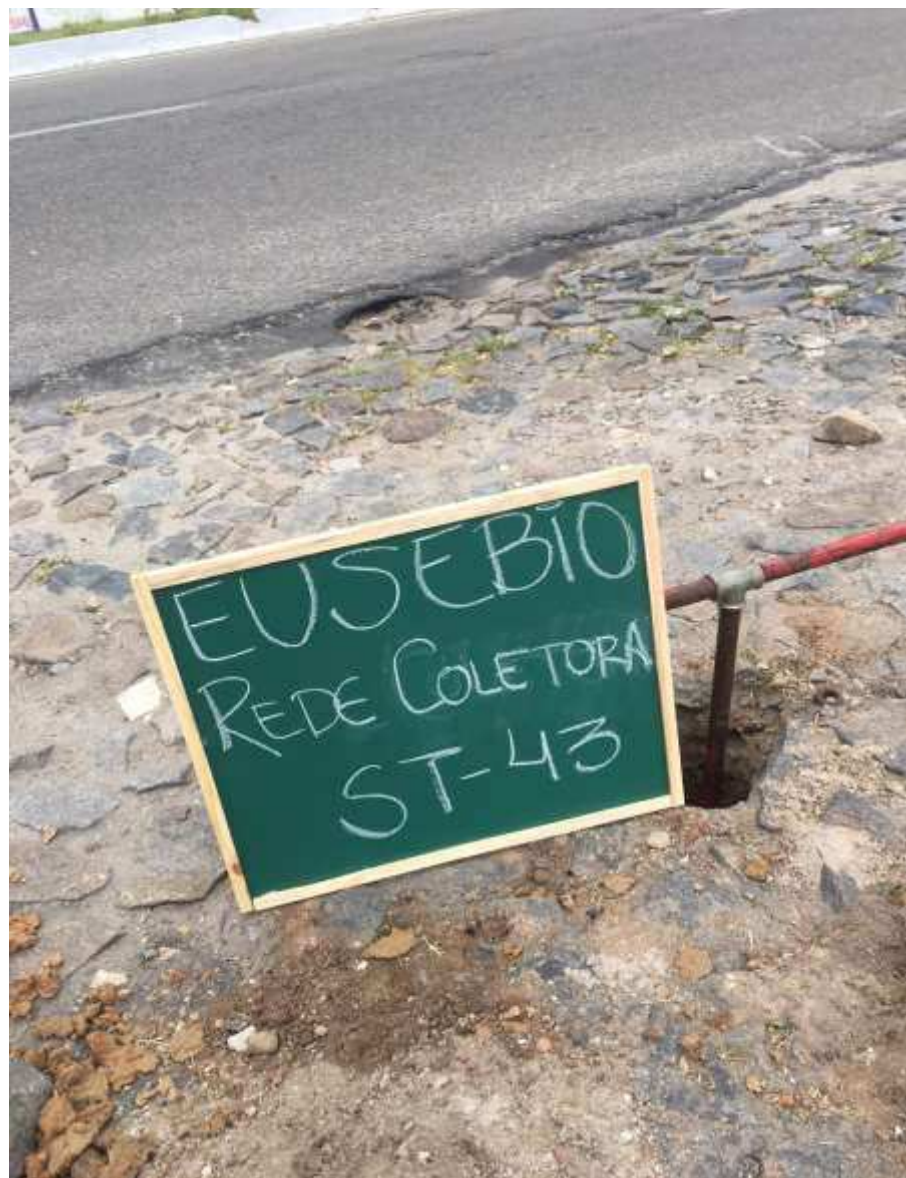 EUSEBIO
REDE COLETORA
ST-43